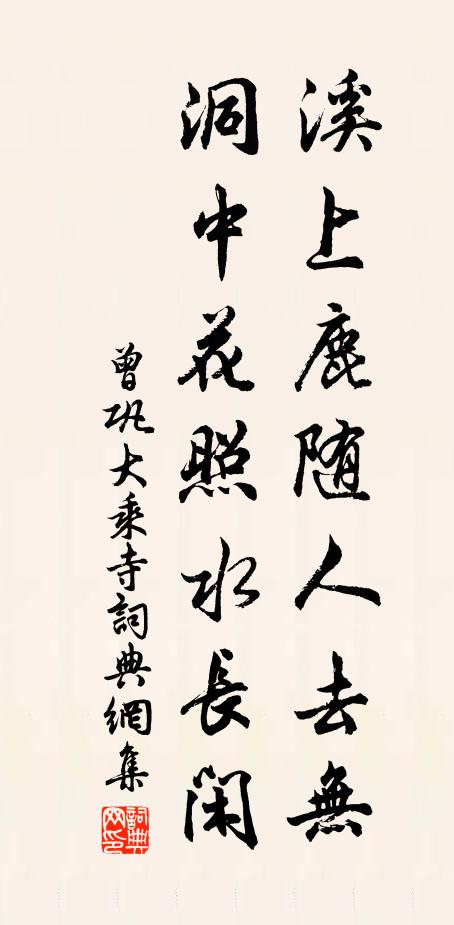 溪上鹿随人去無
洞中花照水長閑
曾巩大乘寺詞典網集
詞典網印